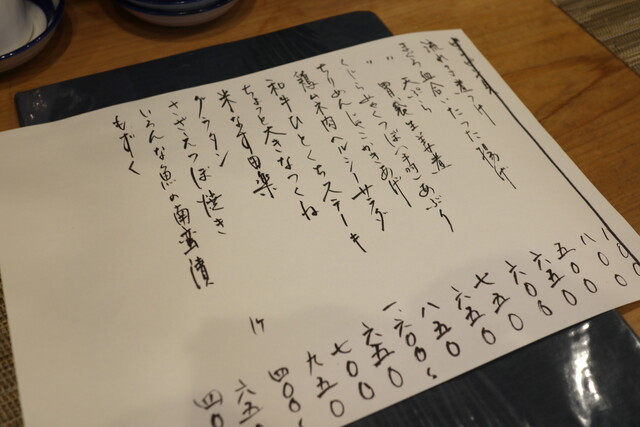 流れ子煮つけ 八〇〇
まぐろ血合いたった揚げ 五〇〇
〃 天ぷら 六五〇
〃 胃袋生姜煮 六〇〇
くじら あぶり 七五〇
ちりめんじゃこかきあげ 六五〇
鶏ムネ肉ヘルシーサラダ 八五〇
和牛ひとくちステーキ 一、六〇〇〜
ちょっと大きなつくね 六五〇
米なす田楽 七〇〇
グラタン 九五〇
さざえつぼ焼き 1ケ 四〇〇〜
いろんな魚の南蛮漬 六五
もずく 四〇